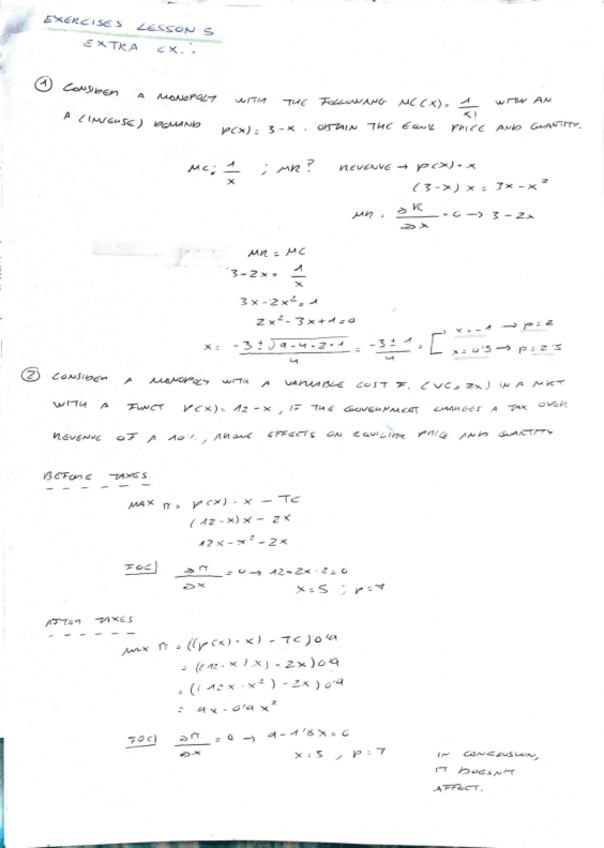 EXERCISES LESSON 5
EXTRA EX.:
① CONSIDER A MONOPOLY WITH THE FOLLOWING MC(X) = 1/x, WITH AN
A (INVERSE) DEMAND p(x) = 3-x. OBTAIN THE EQUIL PRICE AND QUANTITY.
MC: 1/x ; MR? REVENUE → p(x)·x
(3-x)x = 3x-x²
MR = ∂R/∂x = 0 → 3-2x
MR = MC
3-2x = 1/x
3x-2x² = 1
2x²-3x+1=0
x = -3±√9-4·2·1 / 4 = -3±1 / 4 = [ x=-1 → p=2
x=0'5 → p=2'5
② CONSIDER A MONOPOLY WITH A VARIABLE COST F. (VC=2x) IN A MKT
WITH A FUNCT p(x) = 12-x, IF THE GOVERNMENT CHARGES A TAX OVER
REVENUE OF A 10%, ARGUE EFFECTS ON EQUILIB PRICE AND QUANTITY
BEFORE TAXES
MAX π = p(x)·x - TC
(12-x)x - 2x
12x-x²-2x
FOC] ∂π/∂x = 0 → 12-2x-2=0
x=5 ; p=7
AFTER TAXES
MAX π = ((p(x)·x) - TC)0'9
= ((12-x)x) - 2x)0'9
= ((12x-x²) - 2x)0'9
= 9x-0'9x²
FOC] ∂π/∂x = 0 → 9-1'8x=0
x=5, p=7
IN CONCLUSION,
IT DOESN'T
AFFECT.